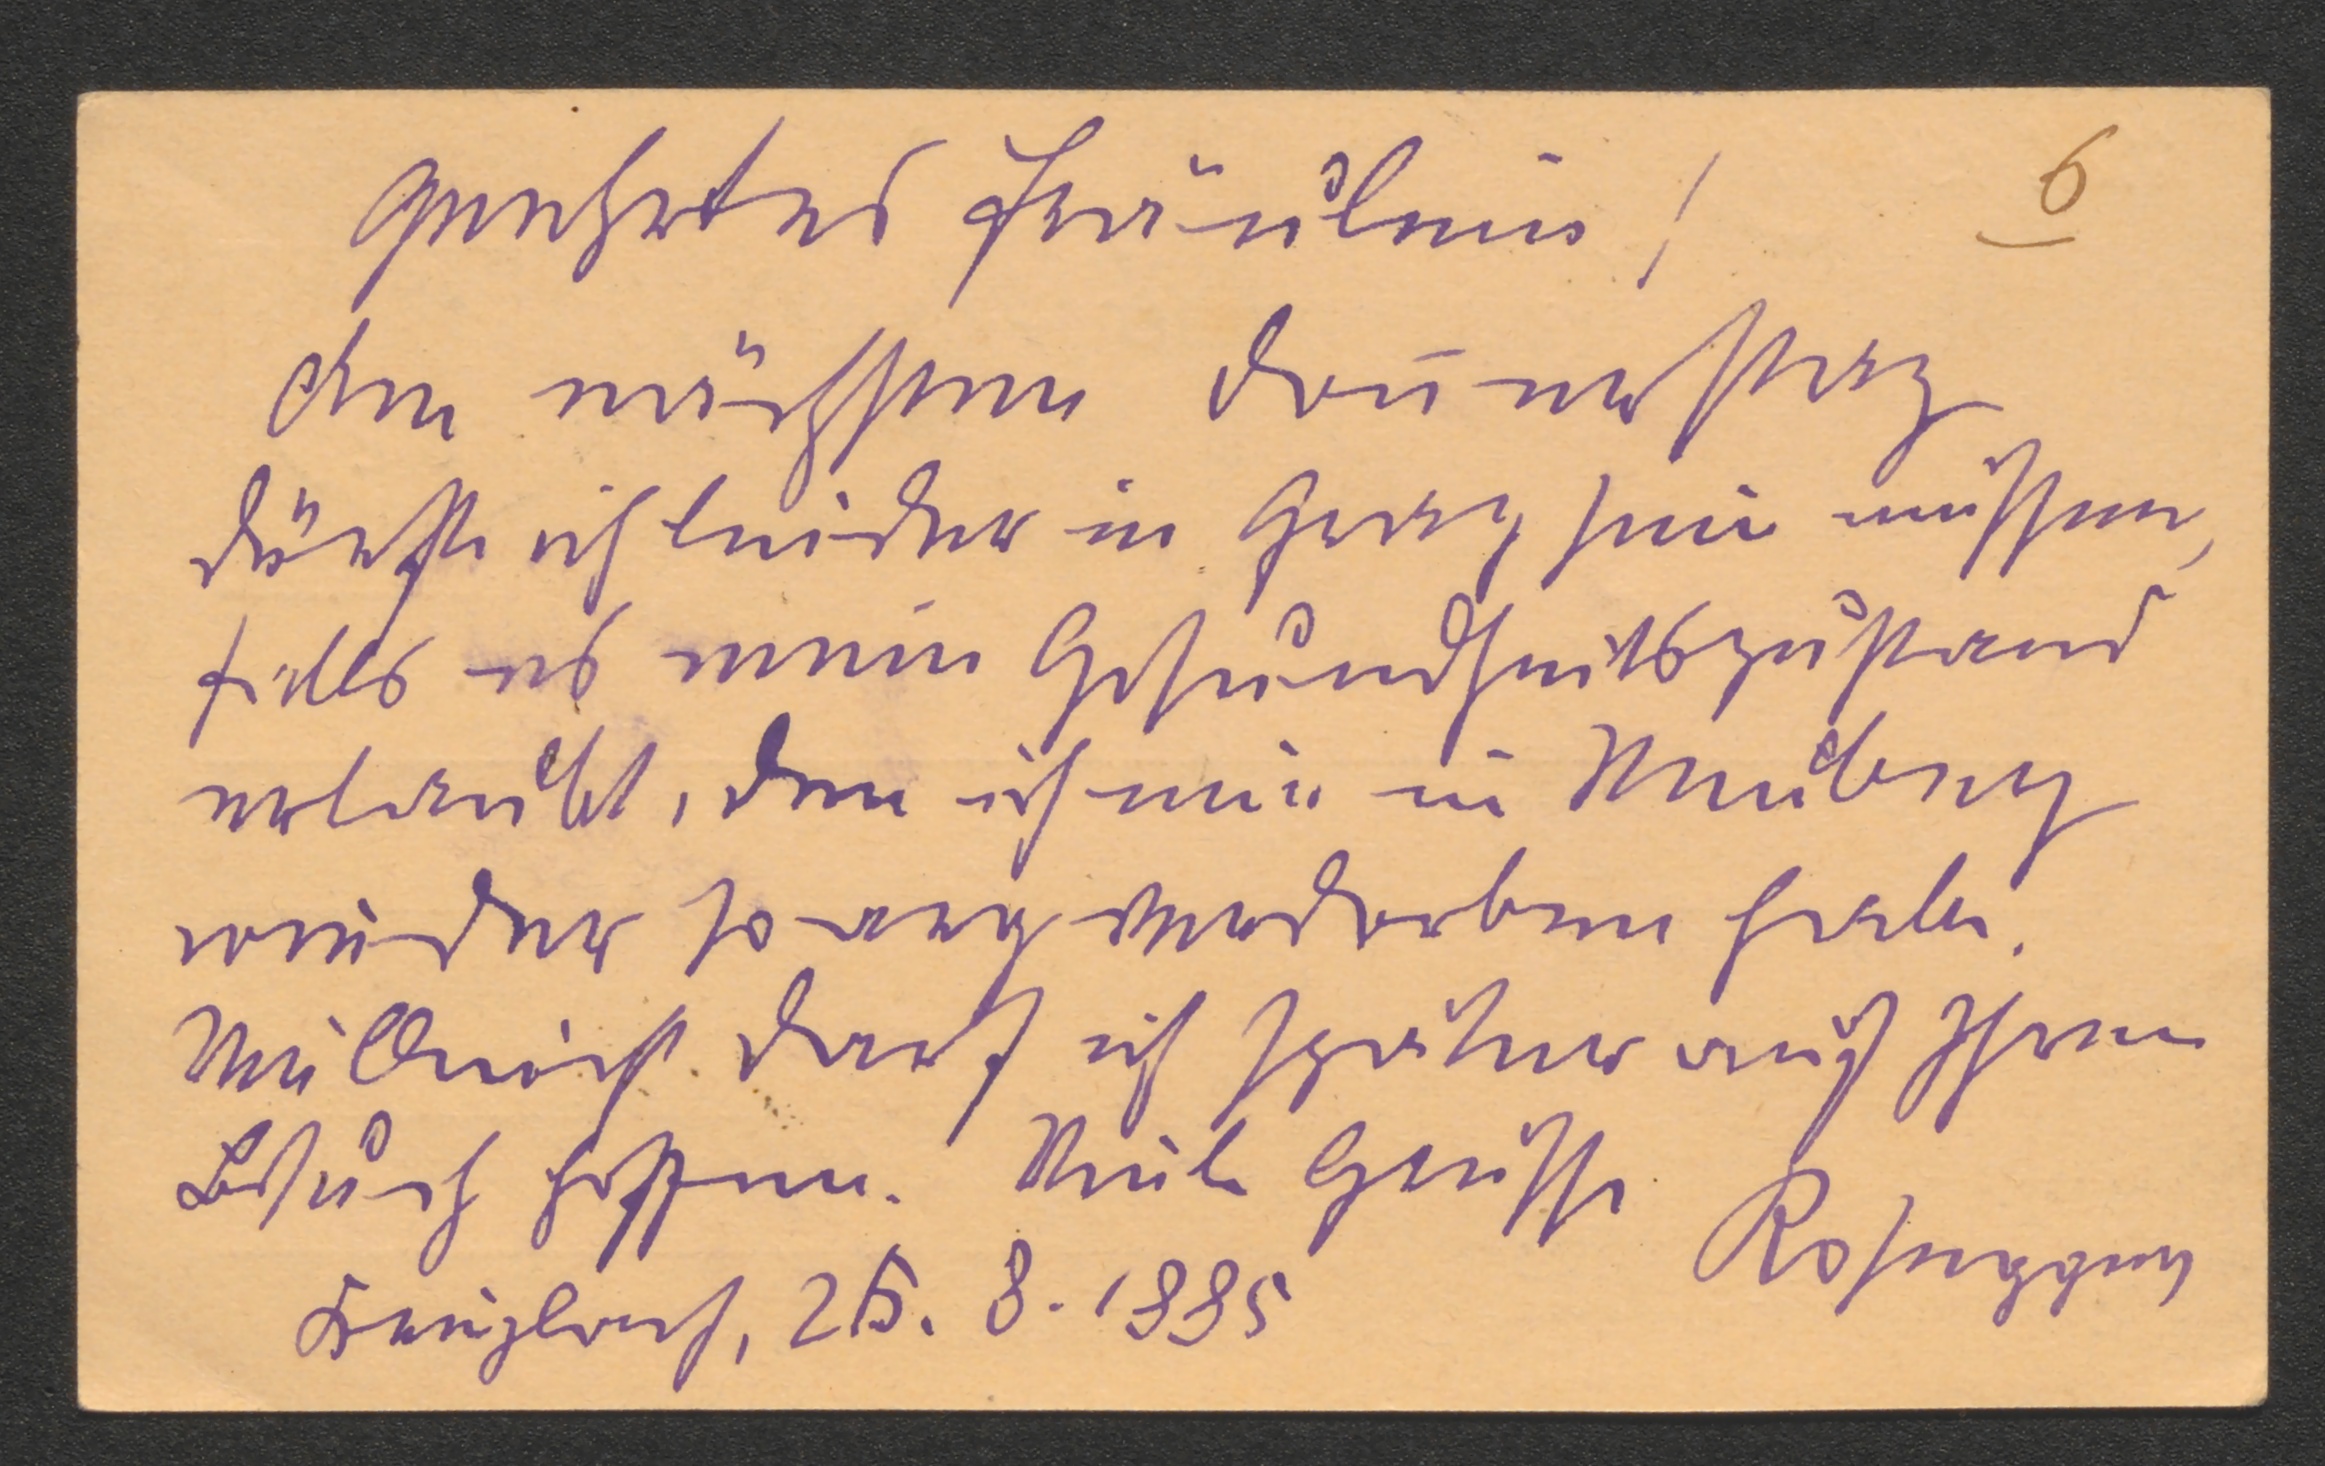 Geehrtes Fräulein!
6
Am nächsten Donnerstag
dürfte ich leider in Graz sein müssen,
falls es mein Gesundheitszustand
erlaubt, den ich mir in Neuberg
wieder so arg verdorben habe.
Vielleicht darf ich später auf Ihren
Besuch hoffen. Viele Grüsse
Rosegger
Krieglach, 25. 8. 1885